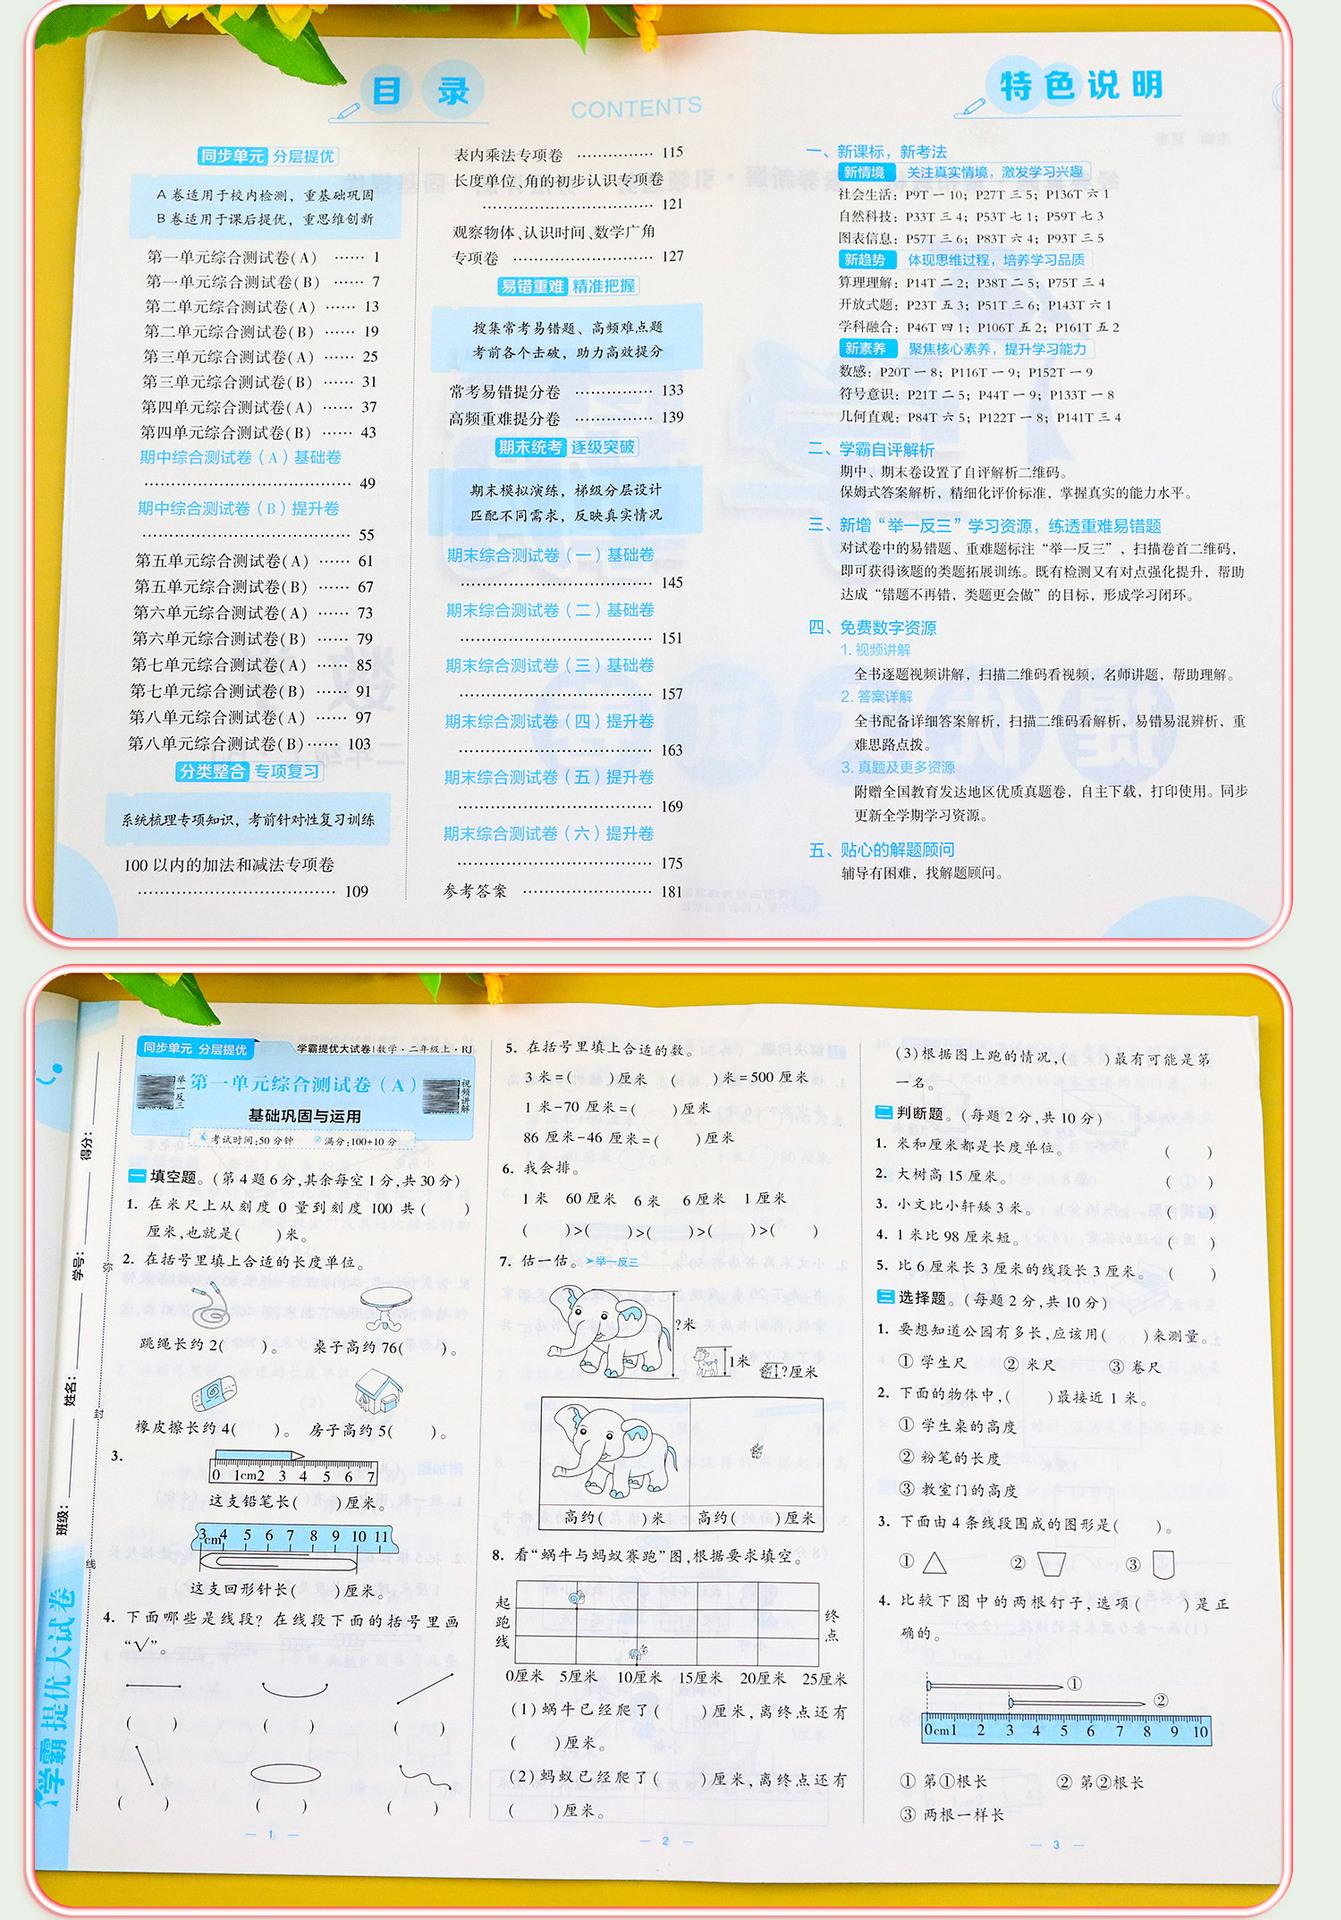 目 录
CONTENTS
同步单元 分层提优
A 卷适用于校内检测，重基础巩固
B 卷适用于课后提优，重思维创新
第一单元综合测试卷(A) …… 1
第一单元综合测试卷(B) …… 7
第二单元综合测试卷(A) …… 13
第二单元综合测试卷(B) …… 19
第三单元综合测试卷(A) …… 25
第三单元综合测试卷(B) …… 31
第四单元综合测试卷(A) …… 37
第四单元综合测试卷(B) …… 43
期中综合测试卷(A)基础卷
…… 49
期中综合测试卷(B)提升卷
…… 55
第五单元综合测试卷(A) …… 61
第五单元综合测试卷(B) …… 67
第六单元综合测试卷(A) …… 73
第六单元综合测试卷(B) …… 79
第七单元综合测试卷(A) …… 85
第七单元综合测试卷(B) …… 91
第八单元综合测试卷(A) …… 97
第八单元综合测试卷(B)…… 103
分类整合 专项复习
系统梳理专项知识，考前针对性复习训练
100 以内的加法和减法专项卷
…… 109
表内乘法专项卷 …… 115
长度单位、角的初步认识专项卷
…… 121
观察物体、认识时间、数学广角
专项卷 …… 127
易错重难 精准把握
搜集常考易错题、高频难点题
考前各个击破，助力高效提分
常考易错提分卷 …… 133
高频重难提分卷 …… 139
期末统考 逐级突破
期末模拟演练，梯级分层设计
匹配不同需求，反映真实情况
期末综合测试卷(一)基础卷
…… 145
期末综合测试卷(二)基础卷
…… 151
期末综合测试卷(三)基础卷
…… 157
期末综合测试卷(四)提升卷
…… 163
期末综合测试卷(五)提升卷
…… 169
期末综合测试卷(六)提升卷
…… 175
参考答案 …… 181
特色说明
一、新课标，新考法
新情境 关注真实情境，激发学习兴趣
社会生活：P9T 一 10；P27T 三 5；P136T 六 1
自然科技：P33T 三 4；P53T 七 1；P59T 七 3
图表信息：P57T 三 6；P83T 六 4；P93T 三 5
新趋势 体现思维过程，培养学习品质
算理理解：P14T 二 2；P38T 二 5；P75T 三 4
开放式题：P23T 五 3；P51T 三 6；P143T 六 1
学科融合：P46T 四 1；P106T 五 2；P161T 五 2
新素养 聚焦核心素养，提升学习能力
数感：P20T 一 8；P116T 一 9；P152T 一 9
符号意识：P21T 二 5；P44T 一 9；P133T 一 8
几何直观：P84T 六 5；P122T 一 8；P141T 三 4
二、学霸自评解析
期中、期末卷设置了自评解析二维码。
保姆式答案解析，精细化评价标准，掌握真实的能力水平。
三、新增“举一反三”学习资源，练透重难易错题
对试卷中的易错题、重难题标注“举一反三”，扫描卷首二维码，
即可获得该题的类题拓展训练。既有检测又有对点强化提升，帮助
达成“错题不再错，类题更会做”的目标，形成学习闭环。
四、免费数字资源
1. 视频讲解
全书逐题视频讲解，扫描二维码看视频，名师讲题，帮助理解。
2. 答案详解
全书配备详细答案解析，扫描二维码看解析，易错易混辨析，重
难思路点拨。
3. 真题及更多资源
附赠全国教育发达地区优质真题卷，自主下载，打印使用。同步
更新全学期学习资源。
五、贴心的解题顾问
辅导有困难，找解题顾问。
得分：
学号：
姓名：
班级：
弥
封
线
学霸提优大试卷
同步单元 分层提优
学霸提优大试卷 | 数学·二年级上·RJ
举一反三
第一单元综合测试卷(A)
视频讲解
基础巩固与运用
考试时间：50分钟 满分：100+10分
一 填空题。(第4题6分，其余每空1分，共30分)
1. 在米尺上从刻度 0 量到刻度 100 共( )
厘米，也就是( )米。
2. 在括号里填上合适的长度单位。
跳绳长约2( )。 桌子高约76( )。
橡皮擦长约4( )。 房子高约5( )。
3.
0 1cm2 3 4 5 6 7
这支铅笔长( )厘米。
3cm4 5 6 7 8 9 10 11
这支回形针长( )厘米。
4. 下面哪些是线段？在线段下面的括号里画
“√”。
( ) ( ) ( )
( ) ( ) ( )
1
5. 在括号里填上合适的数。
3米=( )厘米 ( )米=500厘米
1米-70厘米=( )厘米
86厘米-46厘米=( )厘米
6. 我会排。
1米 60厘米 6米 6厘米 1厘米
( )>( )>( )>( )>( )
7. 估一估。➤举一反三
?米
1米
?厘米
高约( )米 高约( )厘米
8. 看“蜗牛与蚂蚁赛跑”图，根据要求填空。
起跑线
终点
0厘米 5厘米 10厘米 15厘米 20厘米 25厘米
(1)蜗牛已经爬了( )厘米，离终点还有
( )厘米。
(2)蚂蚁已经爬了( )厘米，离终点还有
( )厘米。
2
(3)根据图上跑的情况，( )最有可能是第
一名。
二 判断题。(每题2分，共10分)
1. 米和厘米都是长度单位。 ( )
2. 大树高15厘米。 ( )
3. 小文比小轩矮3米。 ( )
4. 1米比98厘米短。 ( )
5. 比6厘米长3厘米的线段长3厘米。 ( )
三 选择题。(每题2分，共10分)
1. 要想知道公园有多长，应该用( )来测量。
① 学生尺 ② 米尺 ③ 卷尺
2. 下面的物体中，( )最接近1米。
① 学生桌的高度
② 粉笔的长度
③ 教室门的高度
3. 下面由4条线段围成的图形是( )。
① ② ③
4. 比较下图中的两根钉子，选项( )是正
确的。
①
②
0cm1 2 3 4 5 6 7 8 9 10
① 第①根长 ② 第②根长
③ 两根一样长
3